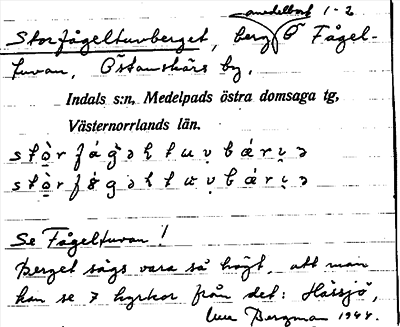 omedelbart 1-2
Storfågeltuvberget, berg Ö Fågel-
tuvan, Östanskärs by.
Indals s:n, Medelpads östra domsaga tg,
Västernorrlands län.
Se Fågeltuvan!
Berget sägs vara så högt, att man
kan se 7 kyrkor från det: Hässjö,
Bergman 1944.